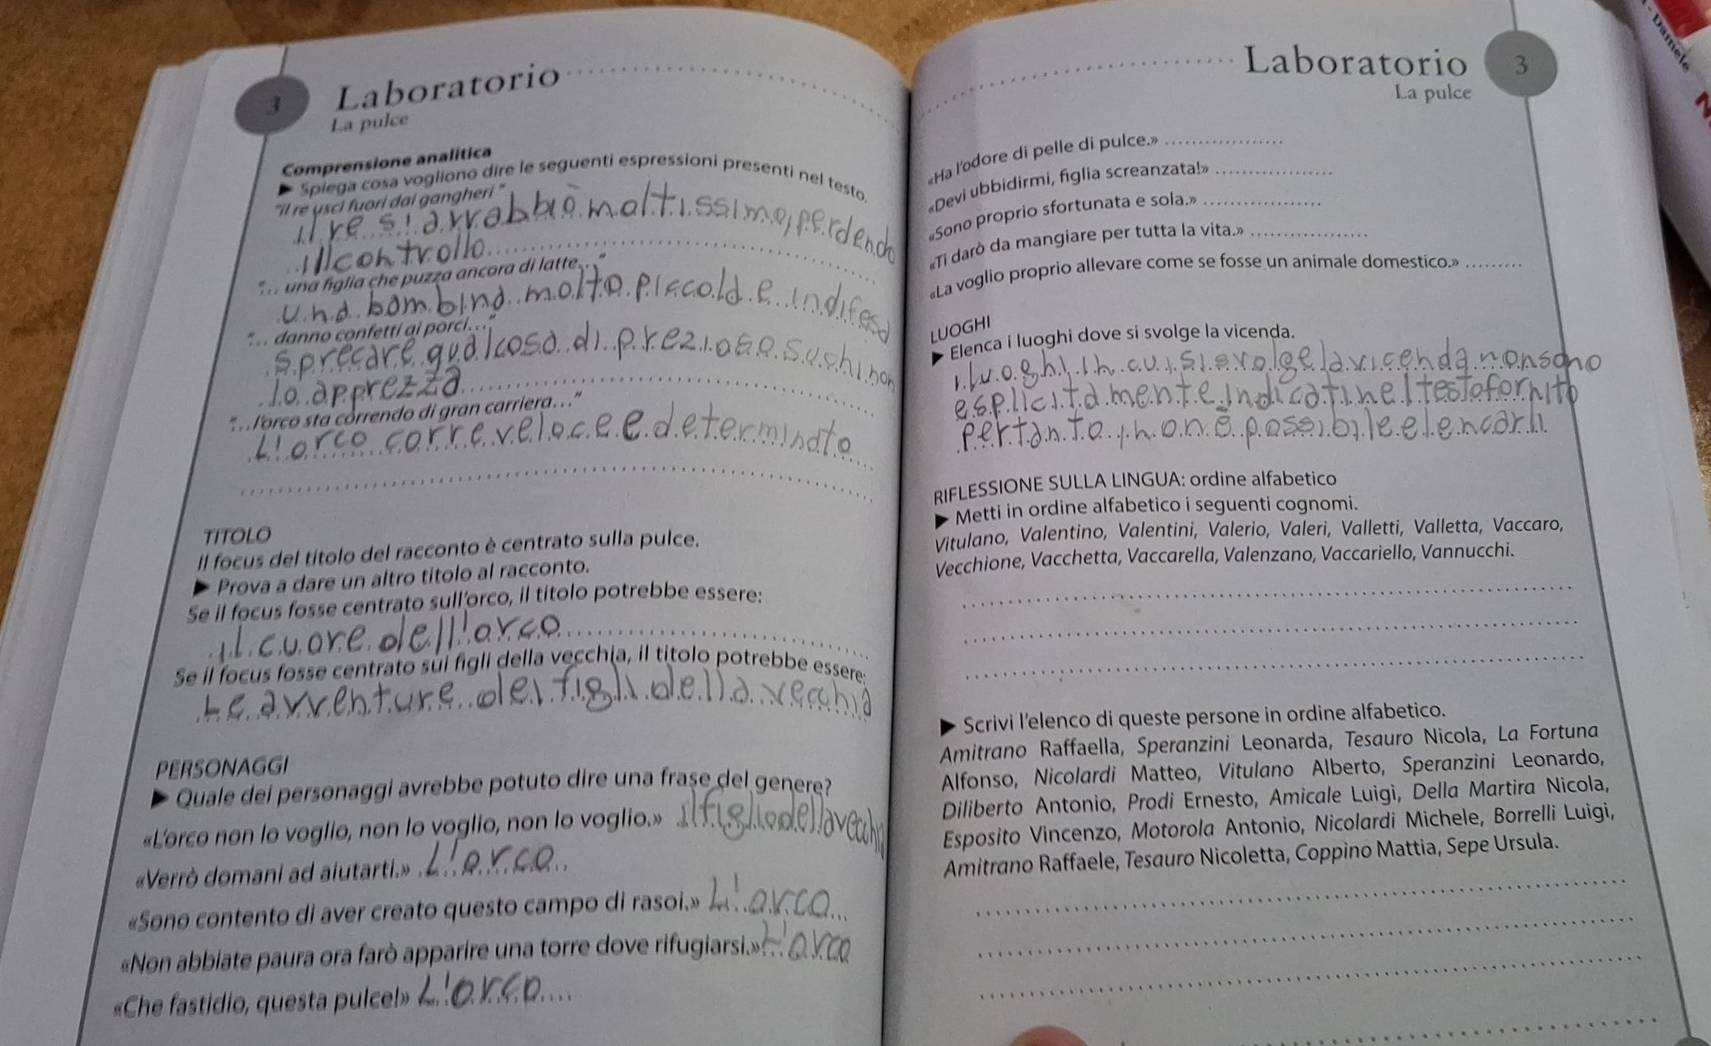 3 Laboratorio
La pulce
Comprensione analitica
▶ Spiega cosa vogliono dire le seguenti espressioni presenti nel testo.
"il re uscì fuori dai gangheri"
il re si arrabbiò moltissimo, perdendo
il controllo
"... una figlia che puzza ancora di latte..."
una bambina molto piccola e indifesa
"... danno confetti ai porci..."
sprecare qualcosa di prezioso su chi non
lo apprezza
"...l'orco sta correndo di gran carriera..."
L'orco corre veloce e determinato
TITOLO
Il focus del titolo del racconto è centrato sulla pulce.
▶ Prova a dare un altro titolo al racconto.
Se il focus fosse centrato sull'orco, il titolo potrebbe essere:
il cuore dell'orco
Se il focus fosse centrato sui figli della vecchia, il titolo potrebbe essere:
Le avventure dei figli della vecchia
PERSONAGGI
▶ Quale dei personaggi avrebbe potuto dire una frase del genere?
«L'orco non lo voglio, non lo voglio, non lo voglio.» il figlio della vecchia
«Verrò domani ad aiutarti.» L'orco
«Sono contento di aver creato questo campo di rasoi.» L'orco
«Non abbiate paura ora farò apparire una torre dove rifugiarsi.» L'orco
«Che fastidio, questa pulce!» L'orco
Laboratorio 3
La pulce
«Ha l'odore di pelle di pulce.»
«Devi ubbidirmi, figlia screanzata!»
«Sono proprio sfortunata e sola.»
«Ti darò da mangiare per tutta la vita.»
«La voglio proprio allevare come se fosse un animale domestico.»
LUOGHI
▶ Elenca i luoghi dove si svolge la vicenda.
i luoghi in cui si svolge la vicenda non sono
esplicitamente indicati nel testo fornito
pertanto, non è possibile elencarli.
RIFLESSIONE SULLA LINGUA: ordine alfabetico
▶ Metti in ordine alfabetico i seguenti cognomi.
Vitulano, Valentino, Valentini, Valerio, Valeri, Valletti, Valletta, Vaccaro,
Vecchione, Vacchetta, Vaccarella, Valenzano, Vaccariello, Vannucchi.
▶ Scrivi l'elenco di queste persone in ordine alfabetico.
Amitrano Raffaella, Speranzini Leonarda, Tesauro Nicola, La Fortuna
Alfonso, Nicolardi Matteo, Vitulano Alberto, Speranzini Leonardo,
Diliberto Antonio, Prodi Ernesto, Amicale Luigi, Della Martira Nicola,
Esposito Vincenzo, Motorola Antonio, Nicolardi Michele, Borrelli Luigi,
Amitrano Raffaele, Tesauro Nicoletta, Coppino Mattia, Sepe Ursula.